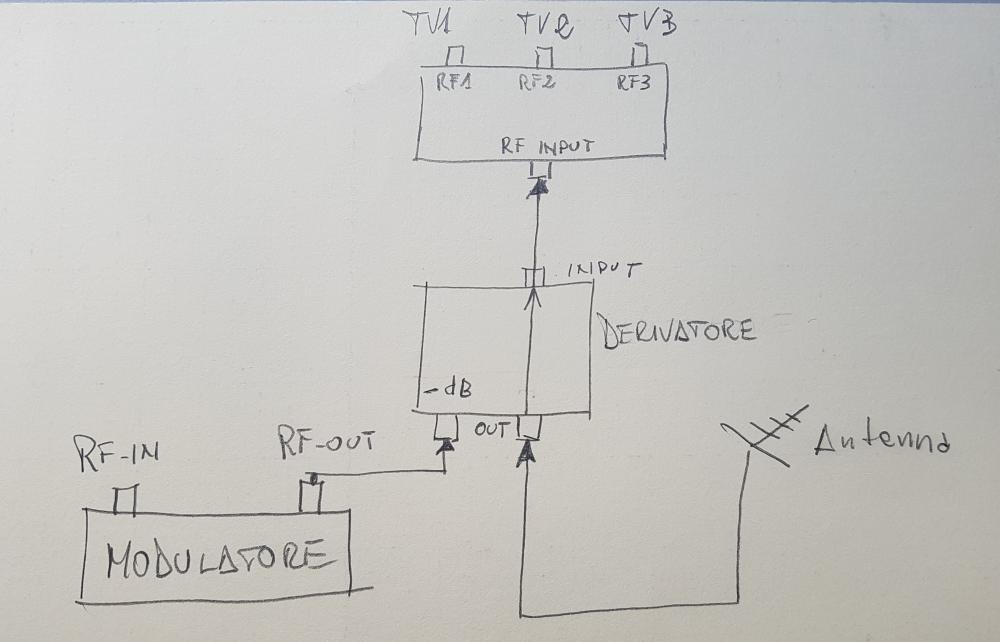 TV1 TV2 TV3
RF1 RF2 RF3
RF INPUT
INPUT
DERIVATORE
-dB
OUT
RF-IN
RF-OUT
Antenna
MODULATORE